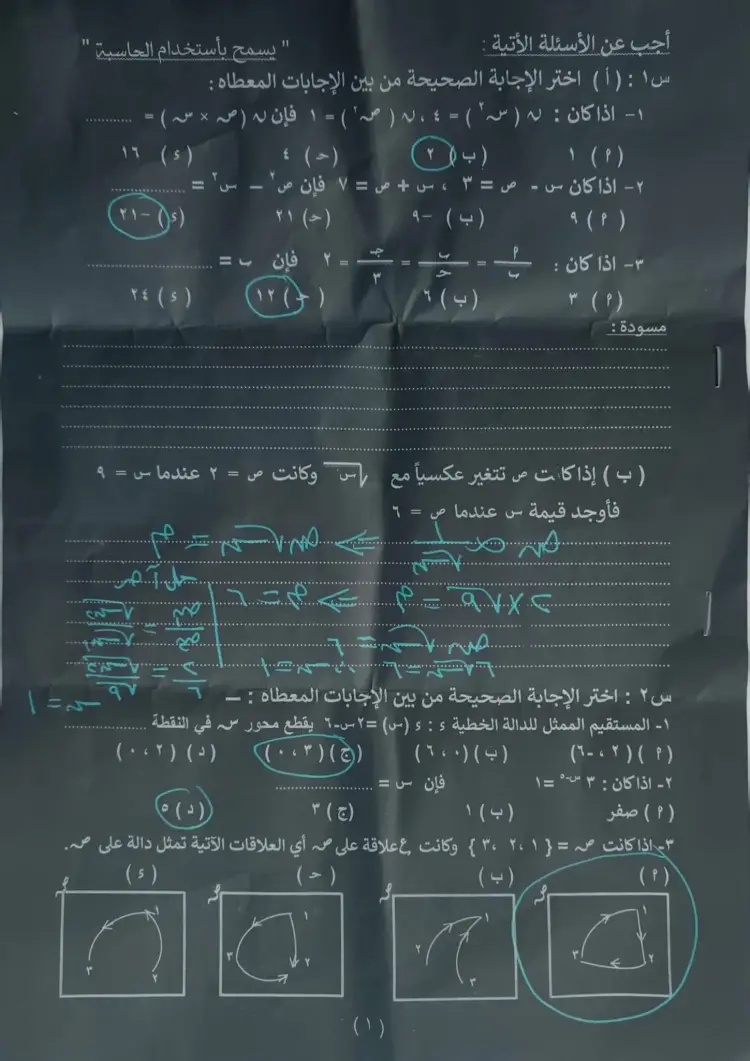 أجب عن الأسئلة الأتية : " يسمح بأستخدام الحاسبة "
س١ : ( أ ) اختر الإجابة الصحيحة من بين الإجابات المعطاه :
١- اذا كان : ن ( س٢ ) = ٤ ، ن ( ص٢ ) = ١ فإن ن ( ص × س ) = ...........
( ٢ ) ١ ( ب ) ٢ ( حـ ) ٤ ( ء ) ١٦
٢- اذا كان س - ص = ٣ ، س + ص = ٧ فإن ص٢ – س٢ = ................
( ٢ ) ٩ ( ب ) -٩ ( حـ ) ٢١ ( ء ) -٢١
٣- اذا كان : م/ب = ب/حـ = جـ/٣ = ٢ فإن ب = ..........................
( ٢ ) ٣ ( ب ) ٦ ( حـ ) ١٢ ( ء ) ٢٤
مسودة :
( ب ) إذا كانت ص تتغير عكسياً مع √س وكانت ص = ٢ عندما س = ٩
فأوجد قيمة س عندما ص = ٦
ص ∝ ١/√س ⇒ ص √س = م
حل آخر
٢ × √٩ = م ⇒ م = ٦
ص √س = ٦
٦ √س = ٦ ∴ س = ١
س = ١
س٢ : اختر الإجابة الصحيحة من بين الإجابات المعطاه : –
١- المستقيم الممثل للدالة الخطية ء : ء (س) = ٢س-٦ يقطع محور س في النقطة ..................
( ٢ ) (٢ ، -٦) ( ب ) (٠ ، ٦) ( ج ) (٣ ، ٠) ( د ) (٢ ، ٠)
٢- اذا كان : ٣ س-٥ = ١ فإن س = .....................
( ٢ ) صفر ( ب ) ١ ( ج ) ٣ ( د ) ٥
٣- اذا كانت ص = { ١ ، ٢ ، ٣ } وكانت ع علاقة على ص أي العلاقات الآتية تمثل دالة على ص.
( ٢ ) ( ب ) ( حـ ) ( ء )
ص ص ص ص
١ ٢ ٣ ١ ٢ ٣ ١ ٢ ٣ ١ ٢ ٣
( ١ )